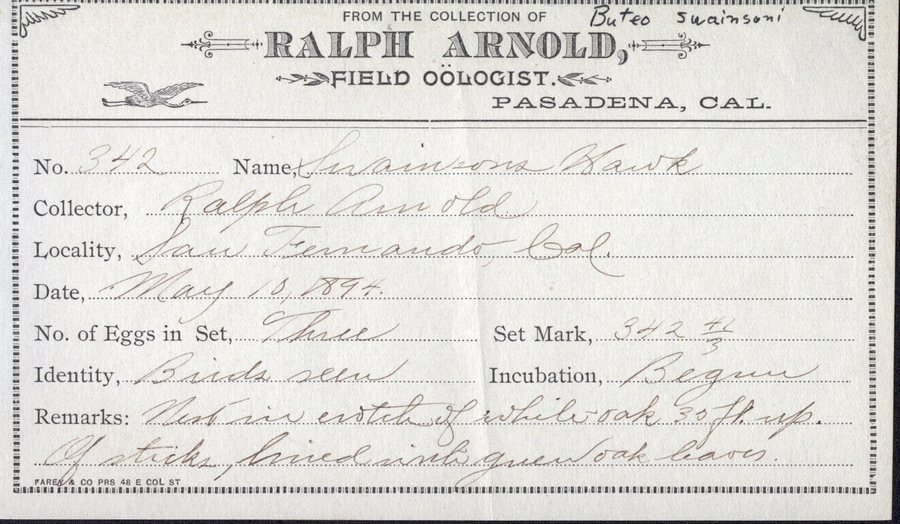 FROM THE COLLECTION OF Buteo swainsoni
RALPH ARNOLD,
FIELD OÖLOGIST.
PASADENA, CAL.
No. 342 Name, Swainsons Hawk
Collector, Ralph Arnold
Locality, San Fernando, Cal.
Date, May 10, 1894.
No. of Eggs in Set, Three Set Mark, 342 41/3
Identity, Birds seen Incubation, Begun
Remarks: Nest in crotch of white oak 30 ft. up.
Of sticks, lined with green oak leaves.
FAREY & CO PRS 48 E COL ST